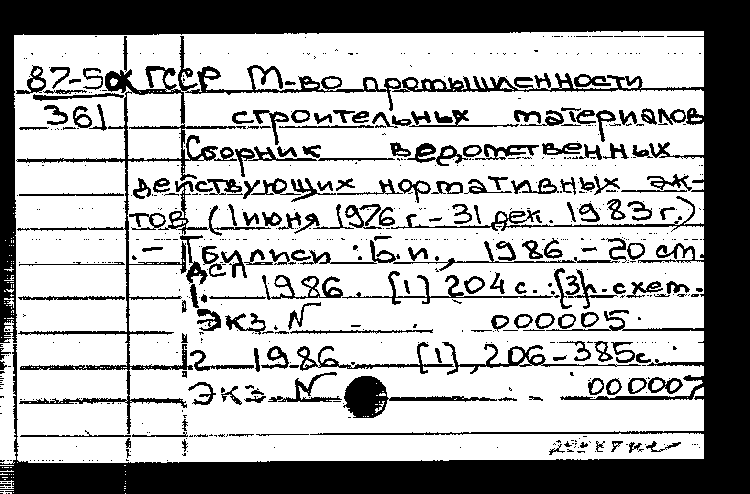 87-5дк ГССР М-во промышленности
361 строительных материалов
Сборник ведомственных
действующих нормативных ак-
тов (1 июня 1976 г. - 31 дек. 1983 г.)
. - Тбилиси : Б.и., 1986. - 20 см.
ДСП
1. 1986. [1] 204 с. : [3] л. схем.
Экз. N - . 000005
2 1986. [1], 206-385 с.
Экз. N - 000007